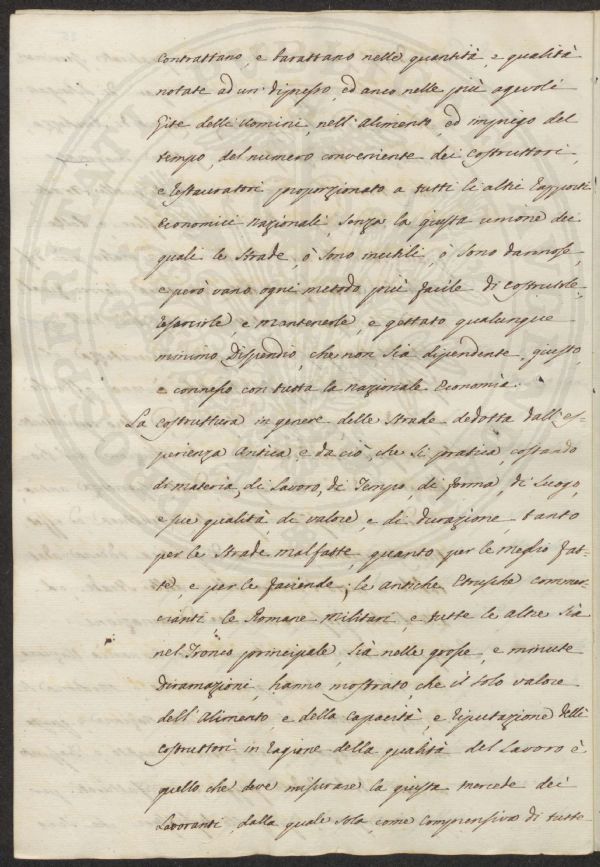 contrattano, e barattano nelle quantità, e qualità
notate ad un dipresso, ed anco nelle più agevoli
Gite delli Uomini, nell'Alimento, ed impiego del
tempo, del numero conveniente dei Costruttori,
e Restauratori proporzionato a tutti li altri Rapporti
Economici Nazionali, senza la giusta unione dei
quali le Strade, ò sono inutili, ò sono dannose,
e però vano ogni metodo più facile di Costruirle,
e mantenerle, e gettato qualunque
minimo Dispendio, che non sia dipendente, giusto,
e connesso con tutta la Nazionale Economia.
La Costruttura in genere delle Strade dedotta dall'es-
perienza Antica, e da ciò, che si pratica, costando
di materia, di Lavoro, di Tempo, di forma, di Luogo,
e sue qualità, di valore, e di durazione, tanto
per le Strade malfatte, quanto per le meglio fat-
te, e per le faciende; le Antiche Etrusche commer-
cianti, le Romane Militari, e tutte le altre sia
nel Tronco principale, sia nelle grosse, e minute
Diramazioni, hanno mostrato, che il solo valore
dell'Alimento, e della Capacità, e Riputazione delli
Costruttori in Ragione della qualità del Lavoro è
quello che deve misurare la giusta mercede dei
Lavoranti, dalla quale sola, come Comprensiva di tutte